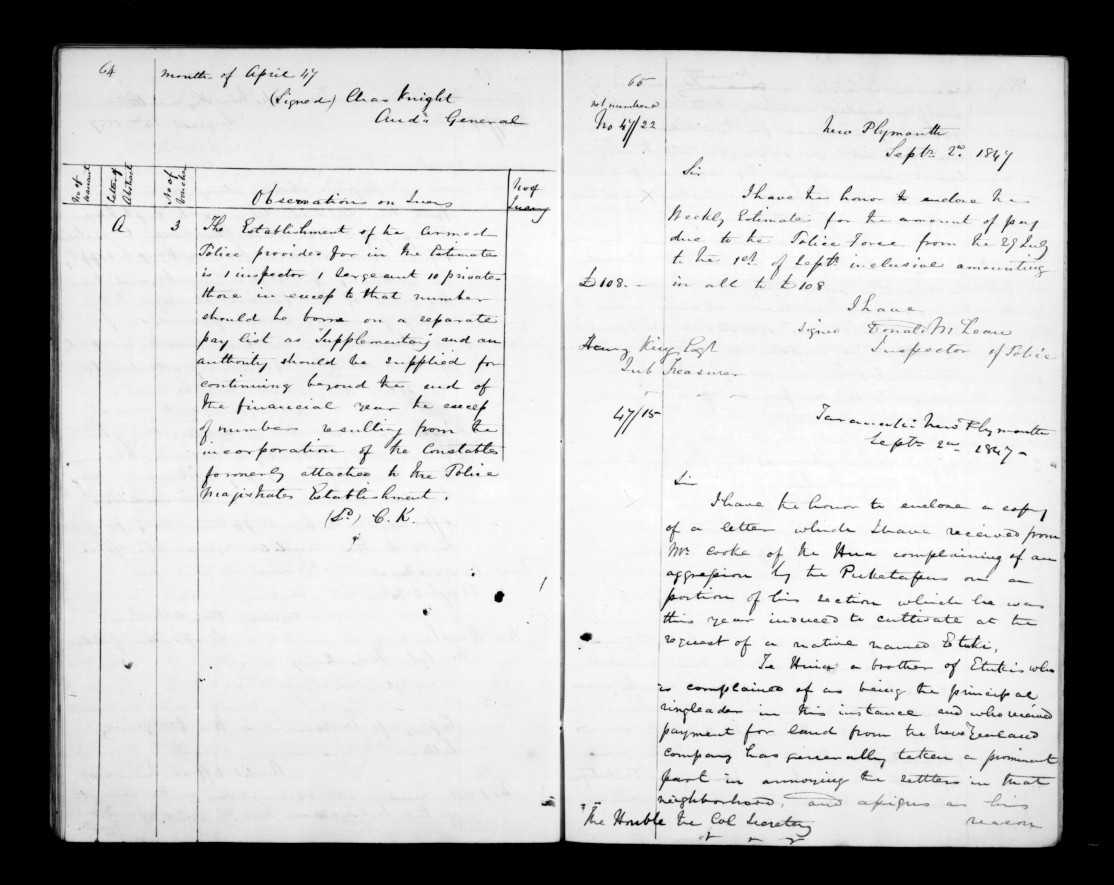 64
month of April 47
(Signed) Chas Knight
Audr General
No of
Letter of Abstract
No of Voucher
Observations on
No of
A
3
The Establishment of the Armed
Police provided for in the Estimates
is 1 inspector 1 sergeant 10 privates
those in excess to that number
should be borne on a separate
pay list as Supplementary and an
authority should be supplied for
continuing beyond the end of
the financial year the excess
of numbers resulting from the
incorporation of the Constables
formerly attached to the Police
Magistrates Establishment.
(Sd) C. K.
65
not numbered
No 47/22
New Plymouth
Septr 2nd 1847
Sir
I have the honor to enclose the
Weekly Estimate for the amount of pay
due to the Police Force from the 29 July
to the 1st of Septr inclusive amounting
£108.-
in all to £108
I have
signed Donald McLean
Inspector of Police
Henry King Esqr
Sub Treasurer
47/15
Taranaki New Plymouth
Septr 2nd 1847-
Sir
I have the honor to enclose a copy
of a letter which I have received from
Mr Cooke of the Hua complaining of an
aggression by the Puketapus on a
portion of his section which he was
this year induced to cultivate at the
request of a native named Etuki.
Te Huia a brother of Etukis who
is complained of as being the principal
ringleader in this instance and who received
payment for land from the New Zealand
Company has generally taken a prominent
part in annoying the settlers in that
neighborhood, and assigns as his
The Honble The Col Secretary
reason